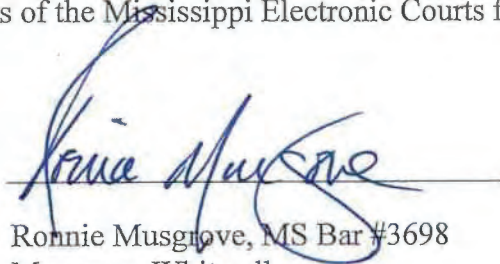 s of the Mississippi Electronic Courts f
Ronnie Musgrove
Ronnie Musgrove, MS Bar #3698